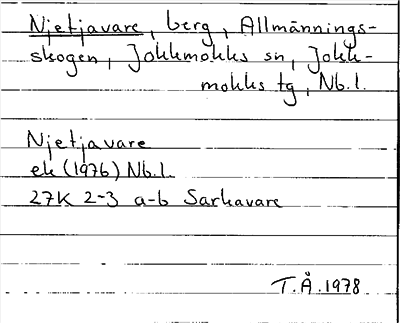 Njetjavare, berg, Allmännings-
skogen, Jokkmokks sn, Jokk-
mokks tg, Nb.l.
Njetjavare
ek (1976) Nb.l.
27K 2-3 a-b Sarkavare
T.Å.1978